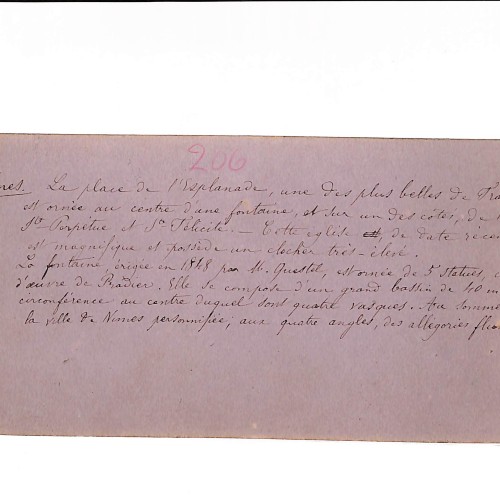 206
mes. La place de l'Esplanade, une des plus belles de Fra
est ornée au centre d'une fontaine, et sur un des côtés, de
Ste Perpétue et Ste Félicité. — Cette église est, de date récen
est magnifique et possède un clocher très-élevé.
La fontaine érigée en 1848 par M. Questel, est ornée de 5 statues, c
d'œuvre de Pradier. Elle se compose d'un grand bassin de 40 m
circonférence au centre duquel sont quatre vasques. Au sommi
la ville de Nimes personnifiée; aux quatre angles, des allégories flu